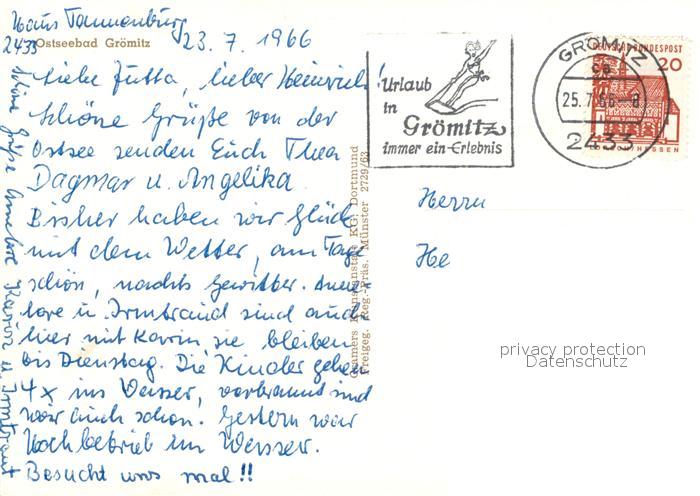 Haus Tannenburg
2433
Ostseebad Grömitz
23.7.1966
Liebe Jutta, lieber Heinrich!
Schöne Grüße von der
Ostsee senden Euch Thea
Dagmar u. Angelika
Bisher haben wir Glück
mit dem Wetter, am Tage
schön, nachts Gewitter. Anne-
lore u. Irmtraud sind auch
hier mit Karin sie bleiben
bis Dienstag. Die Kinder gehen
4x ins Wasser, verbrannt sind
wir auch schon. Gestern war
Hochbetrieb im Wasser.
Besucht uns mal!!
Schöne Grüße Annelore Karin u. Irmtraut
Cramers Kunstanstalt KG. Dortmund
Freigeg. Reg.-Präs. Münster 2729/63
Urlaub
in
Grömitz
immer ein Erlebnis
GRÖMITZ
ca
25.7.66-8
2433
DEUTSCHE BUNDESPOST
20
LORSCH/HESSEN
Herrn
He
privacy protection
Datenschutz